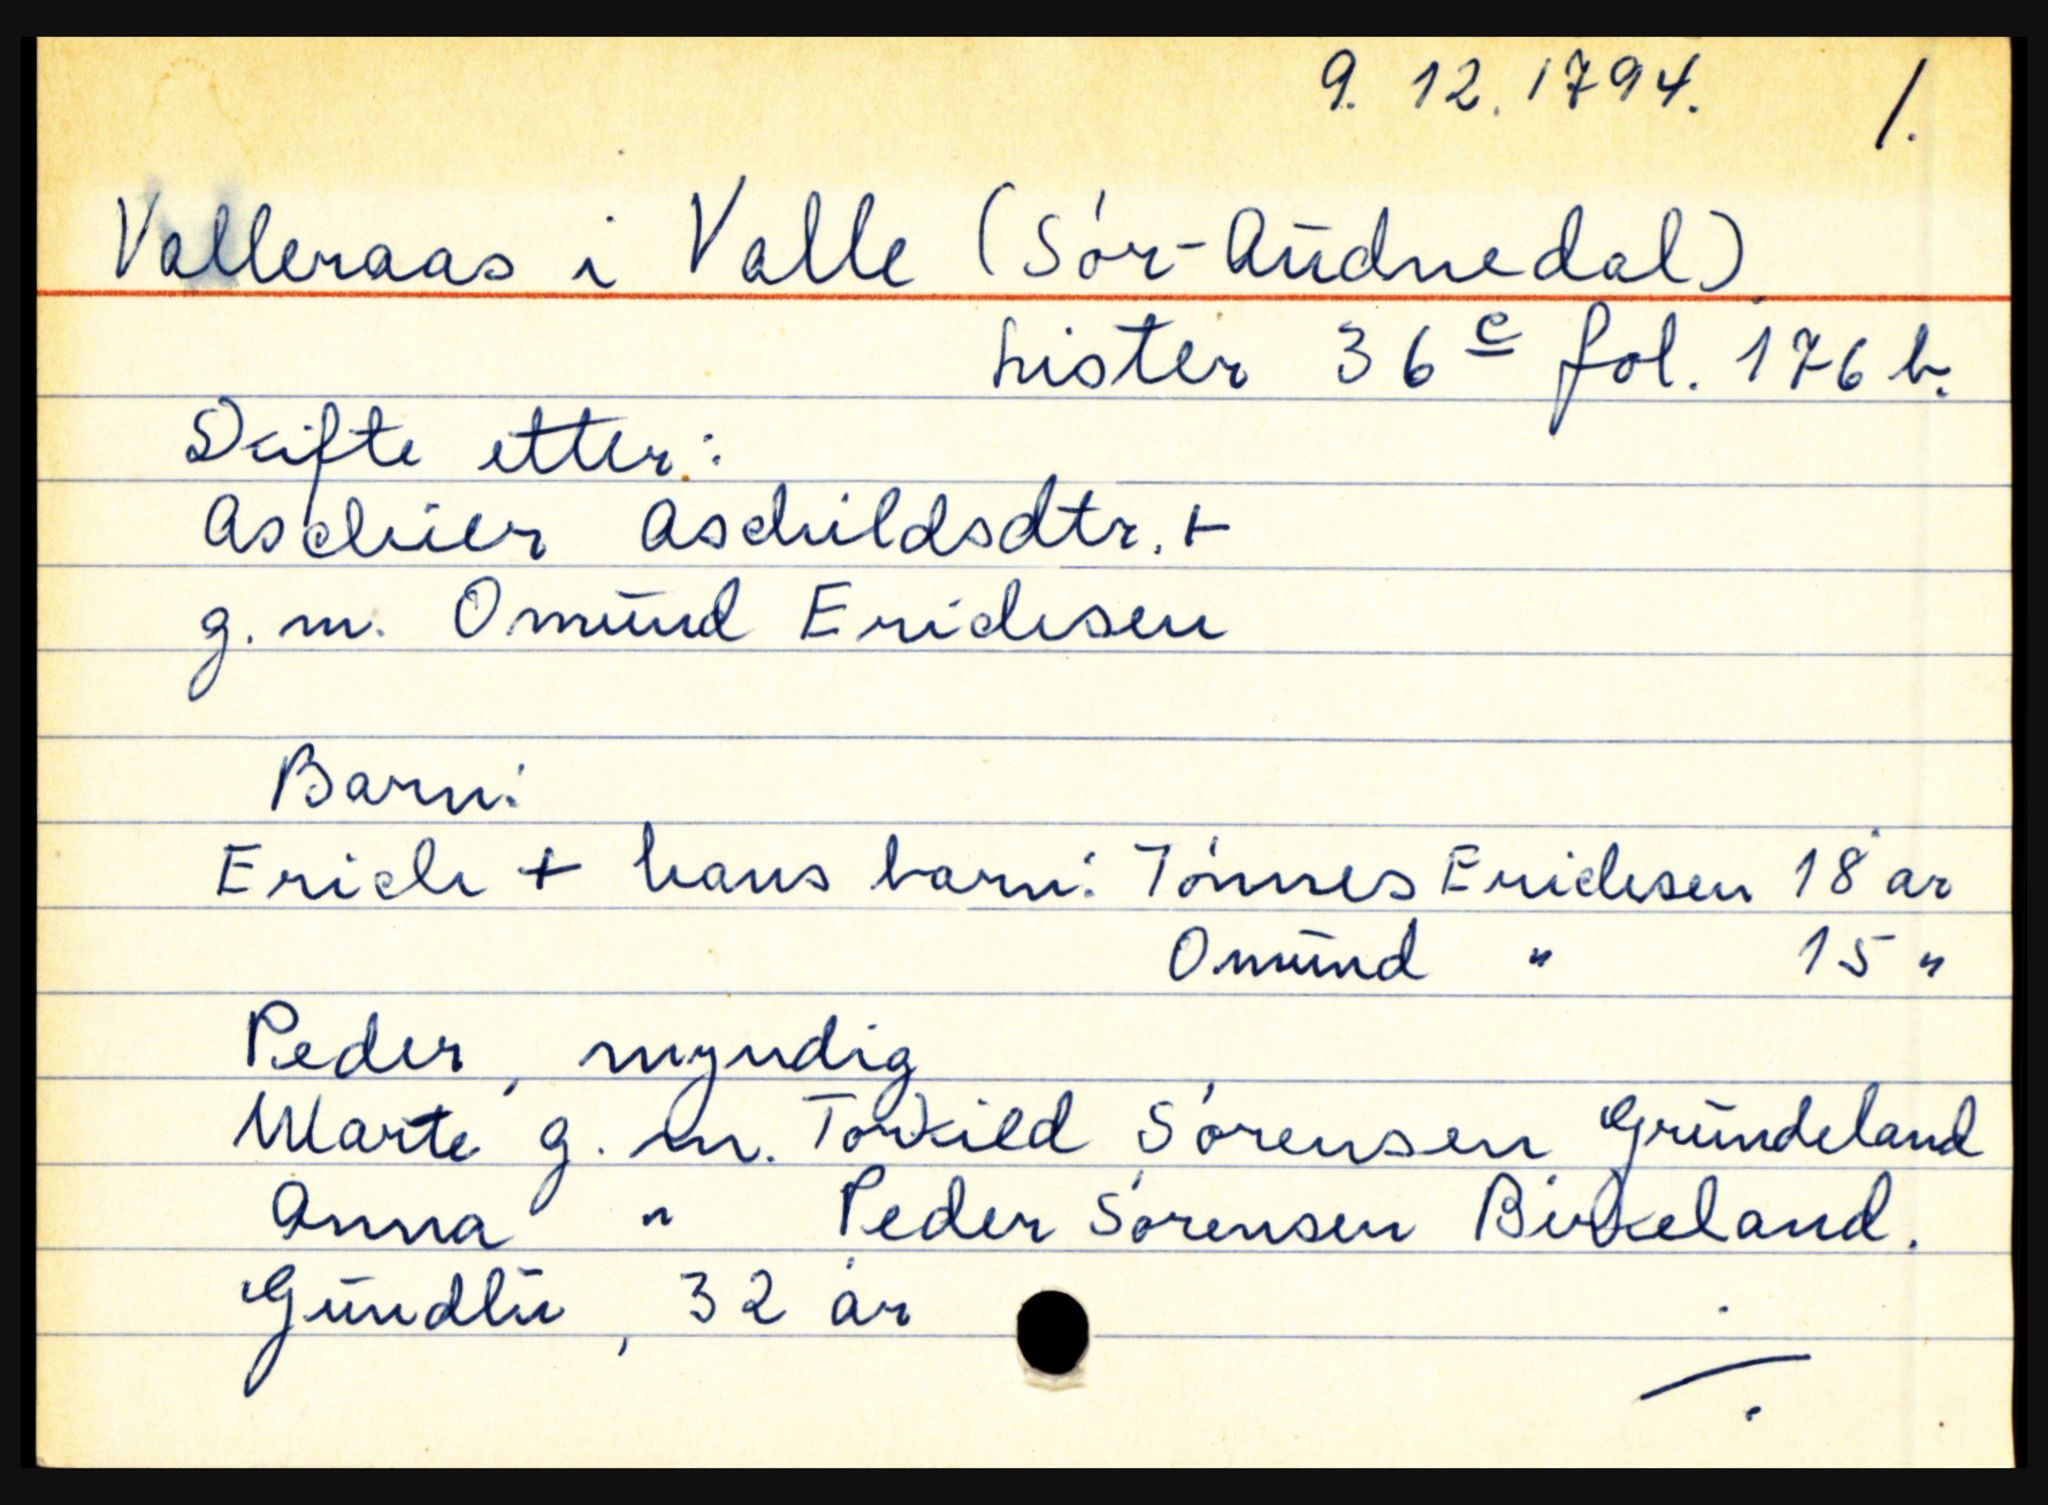 9. 12. 1794. 1.
Valleraas i Valle (Sør-Audnedal)
Lister 36 c fol. 176 b.
Skifte etter:
Aschier Aschildsdtr. +
g. m. Omund Erichsen
Barn:
Erich + hans barn: Tønnes Erichsen 18 år
Omund " 15 "
Peder, myndig
Marte g. m. Torkild Sørensen Grundeland
Anna " Peder Sørensen Birkeland.
Gundlu, 32 år